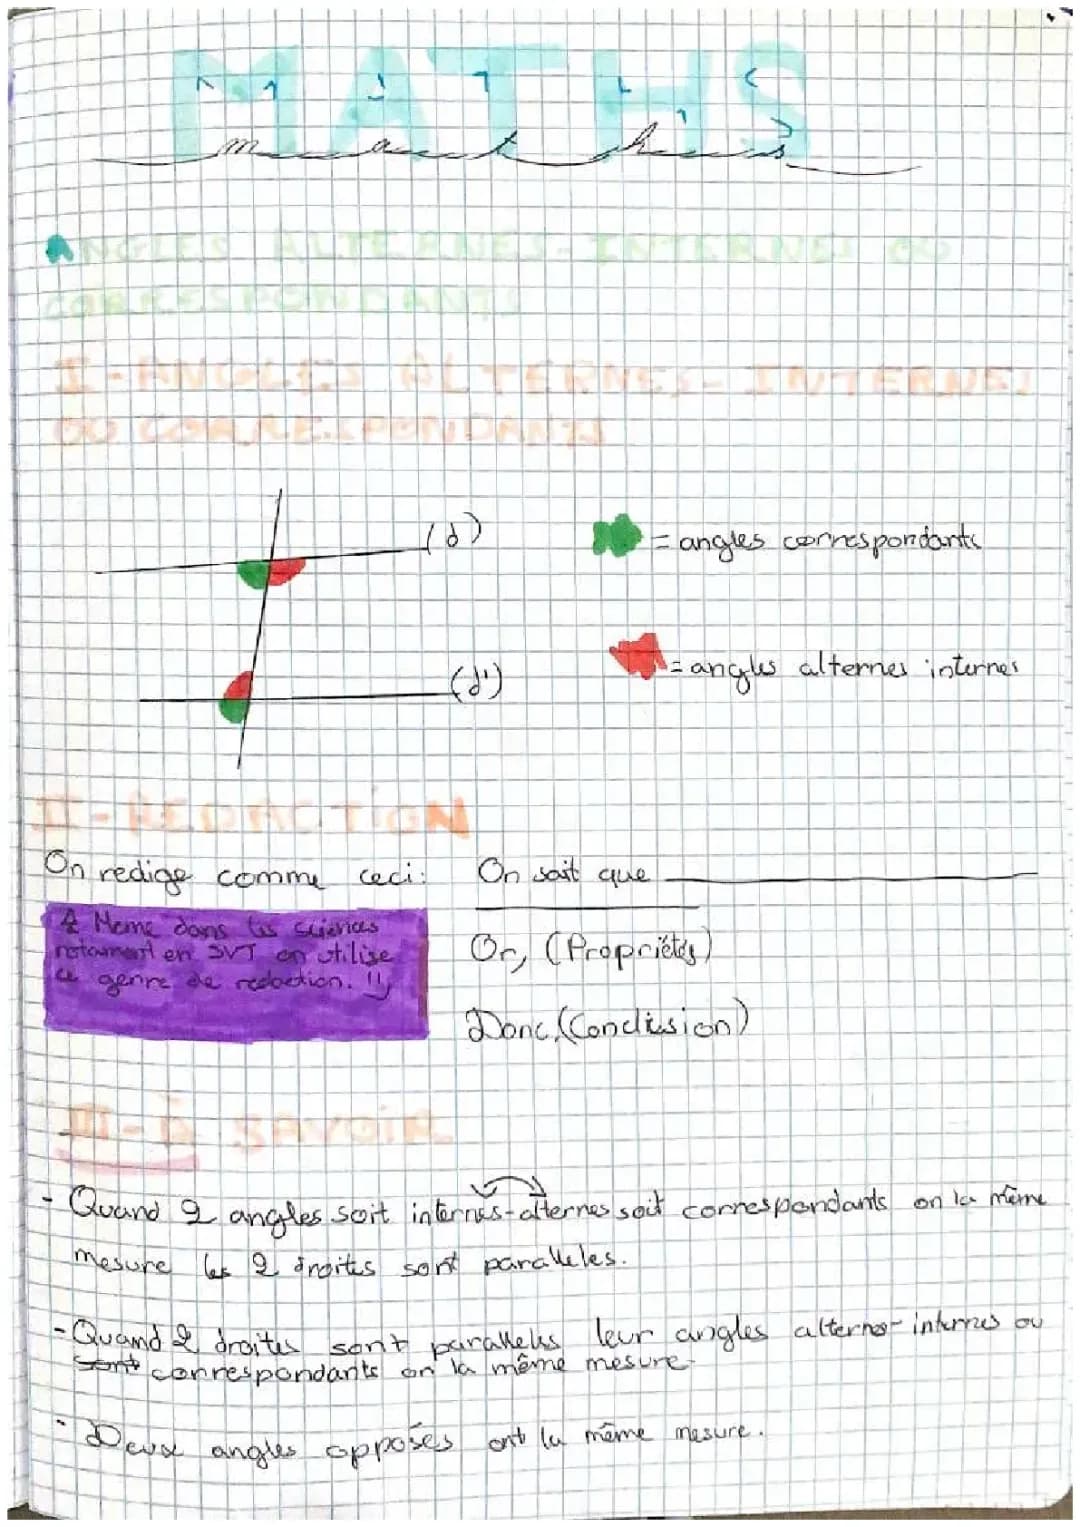 MATHS
maths
ANGLES ALTERNES-INTERNES OU
CORRESPONDANTS
I-ANGLES ALTERNES-INTERNES
OU CORRESPONDANTS
(d)
= angles correspondants
(d')
= angles alternes internes
II-REDACTION
On redige comme ceci: On sait que
Meme dans les sciences
notament en SVT on utilise
ce genre de redaction. !!
Or, (Propriétés)
Donc, (Conclusion)
III-À SAVOIR
- Quand 2 angles soit internes-alternes soit correspondants on la même
mesure les 2 droites sont paralleles.
- Quand 2 droites sont paralleles leur angles alterno-internes ou
sont correspondants on la même mesure.
- Deux angles opposés ont la même mesure.